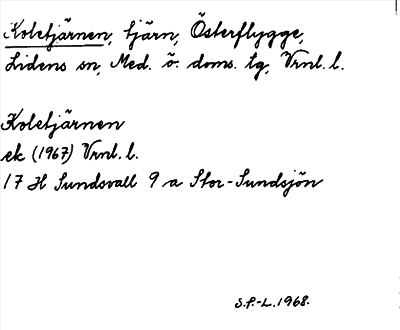 Koletjärnen, tjärn, Österflygge,
Lidens sn, Med. ö. doms. tg, Vrnl. l.
Koletjärnen
ek (1967) Vrnl. l.
17 H Sundsvall 9 a Stor-Sundsjön
S.F.-L. 1968.